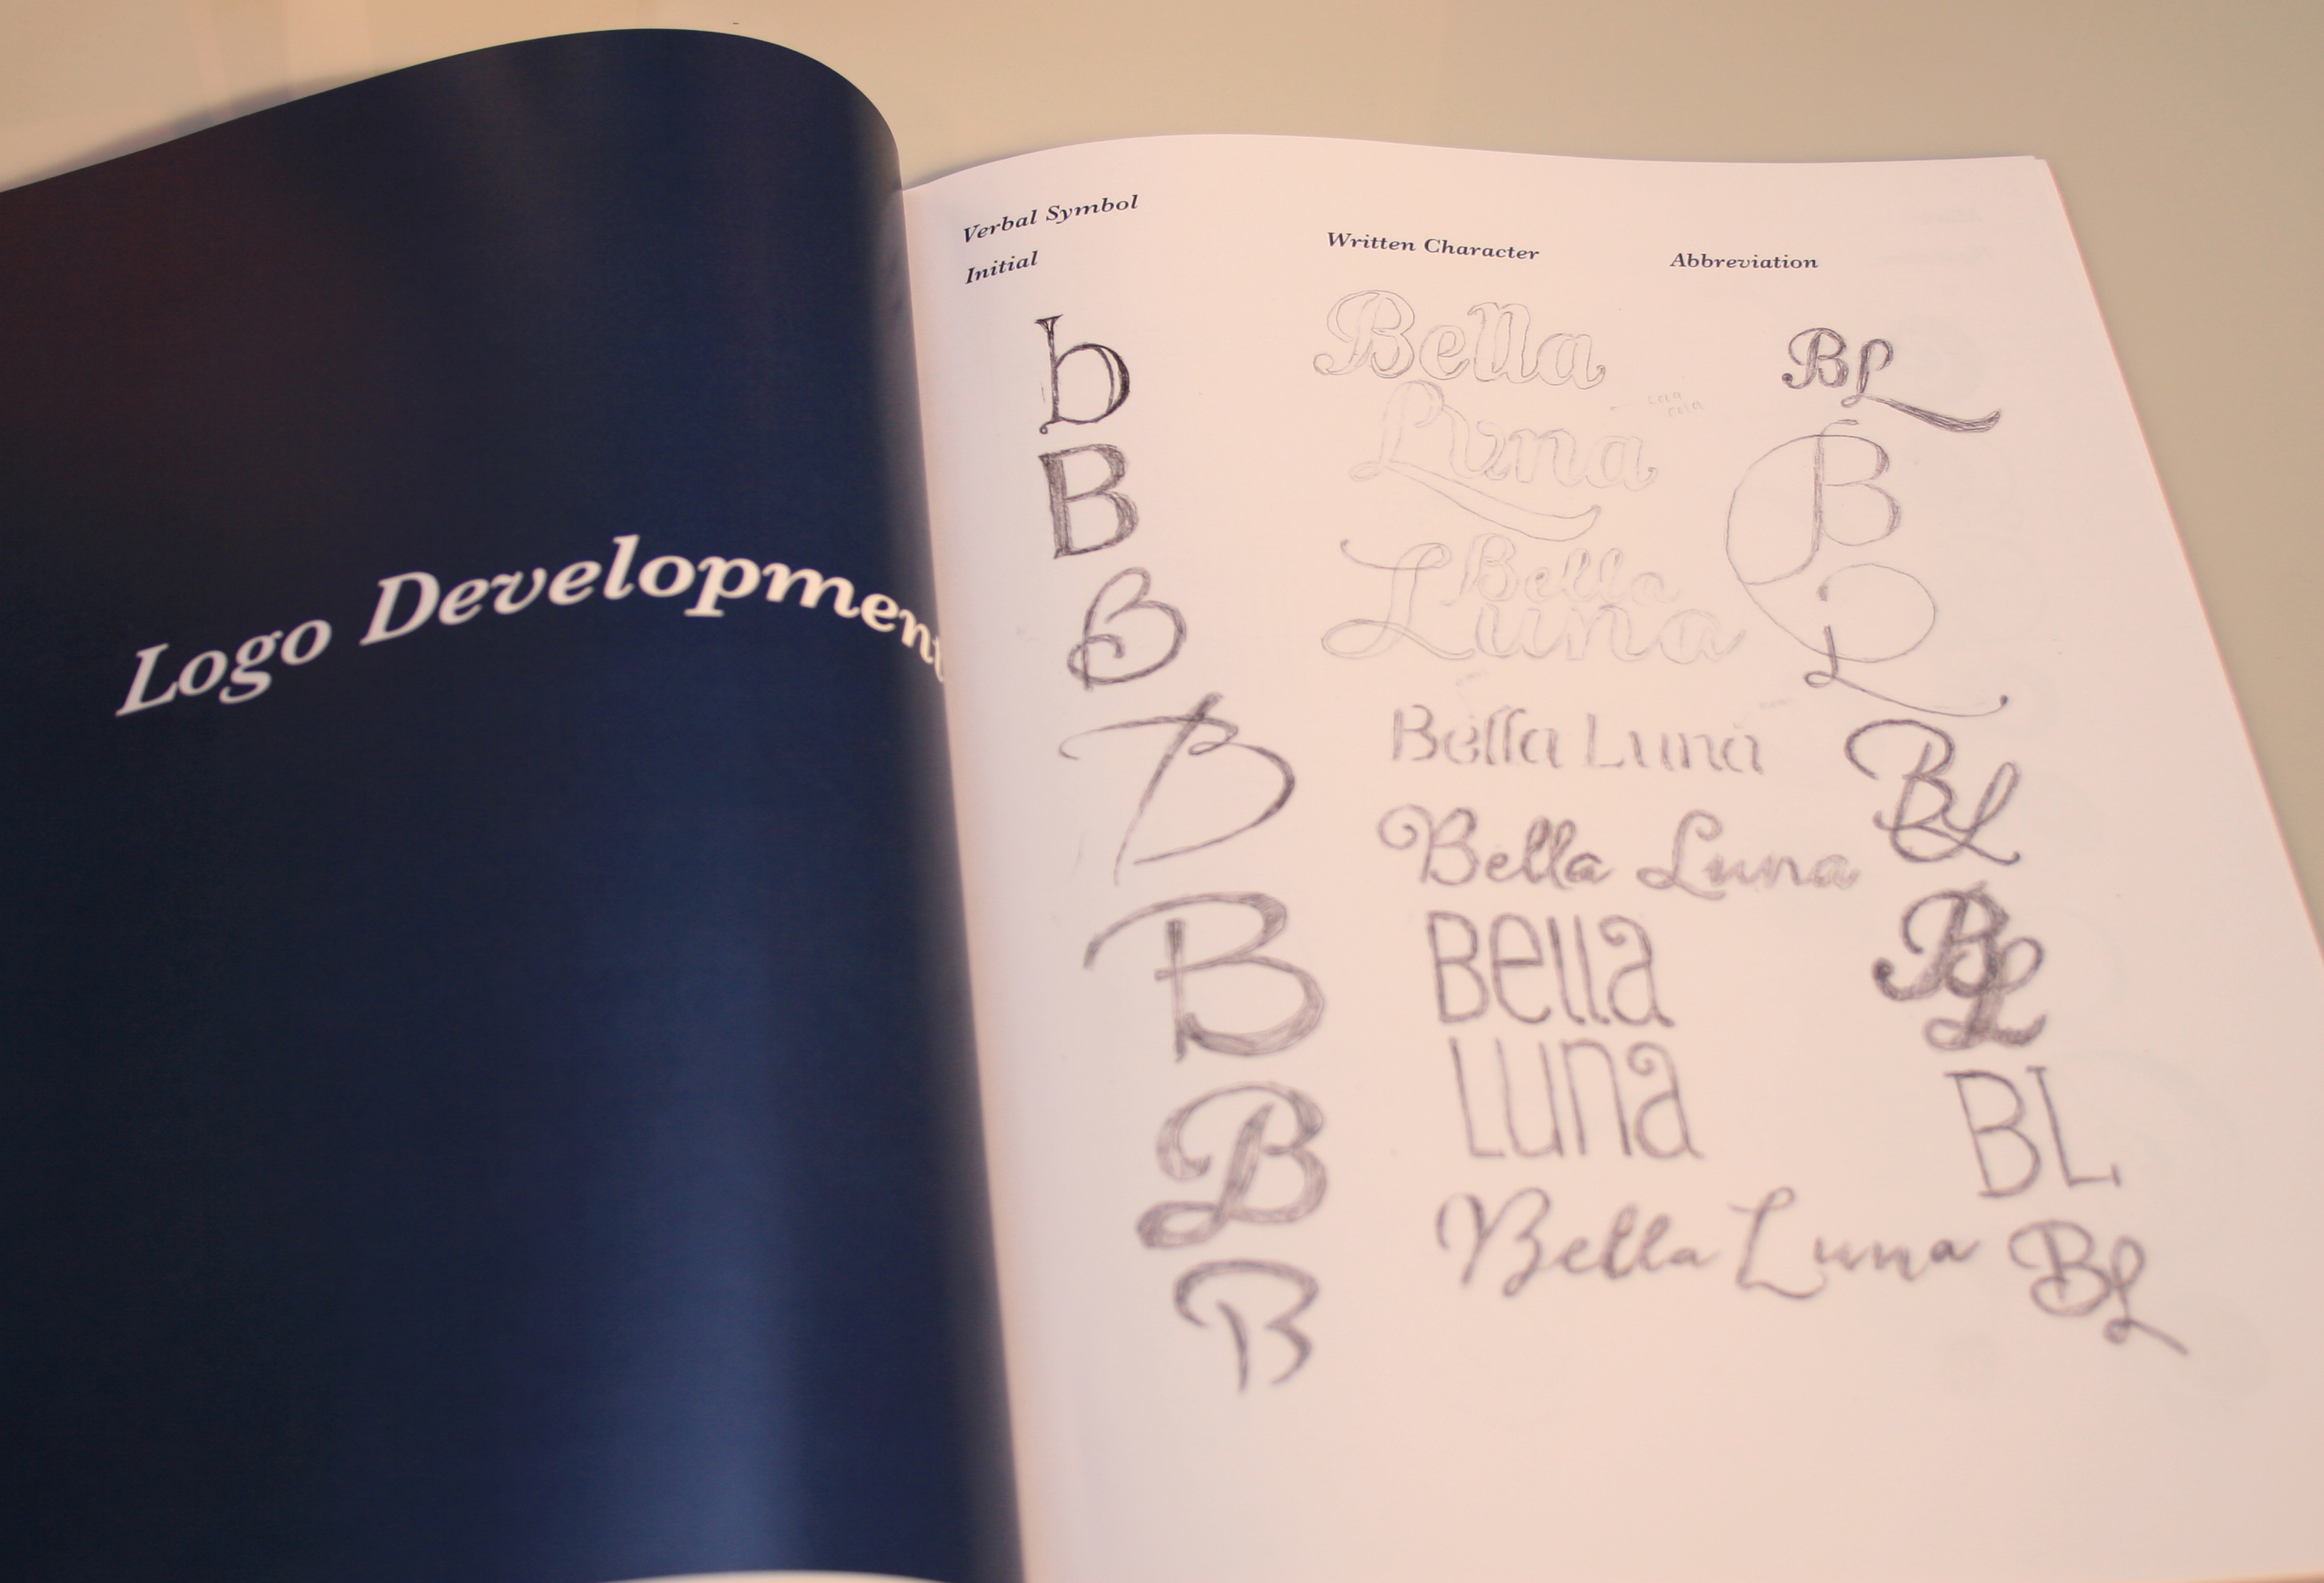 Logo Development
Verbal Symbol
Initial
b
B
B
B
B
B
B
Written Character
Bella
Luna
coca
cola
Bella
Luna
Bella Luna
Bella Luna
Bella
Luna
Bella Luna
Abbreviation
BL
B
L
BL
BL
BL
BL